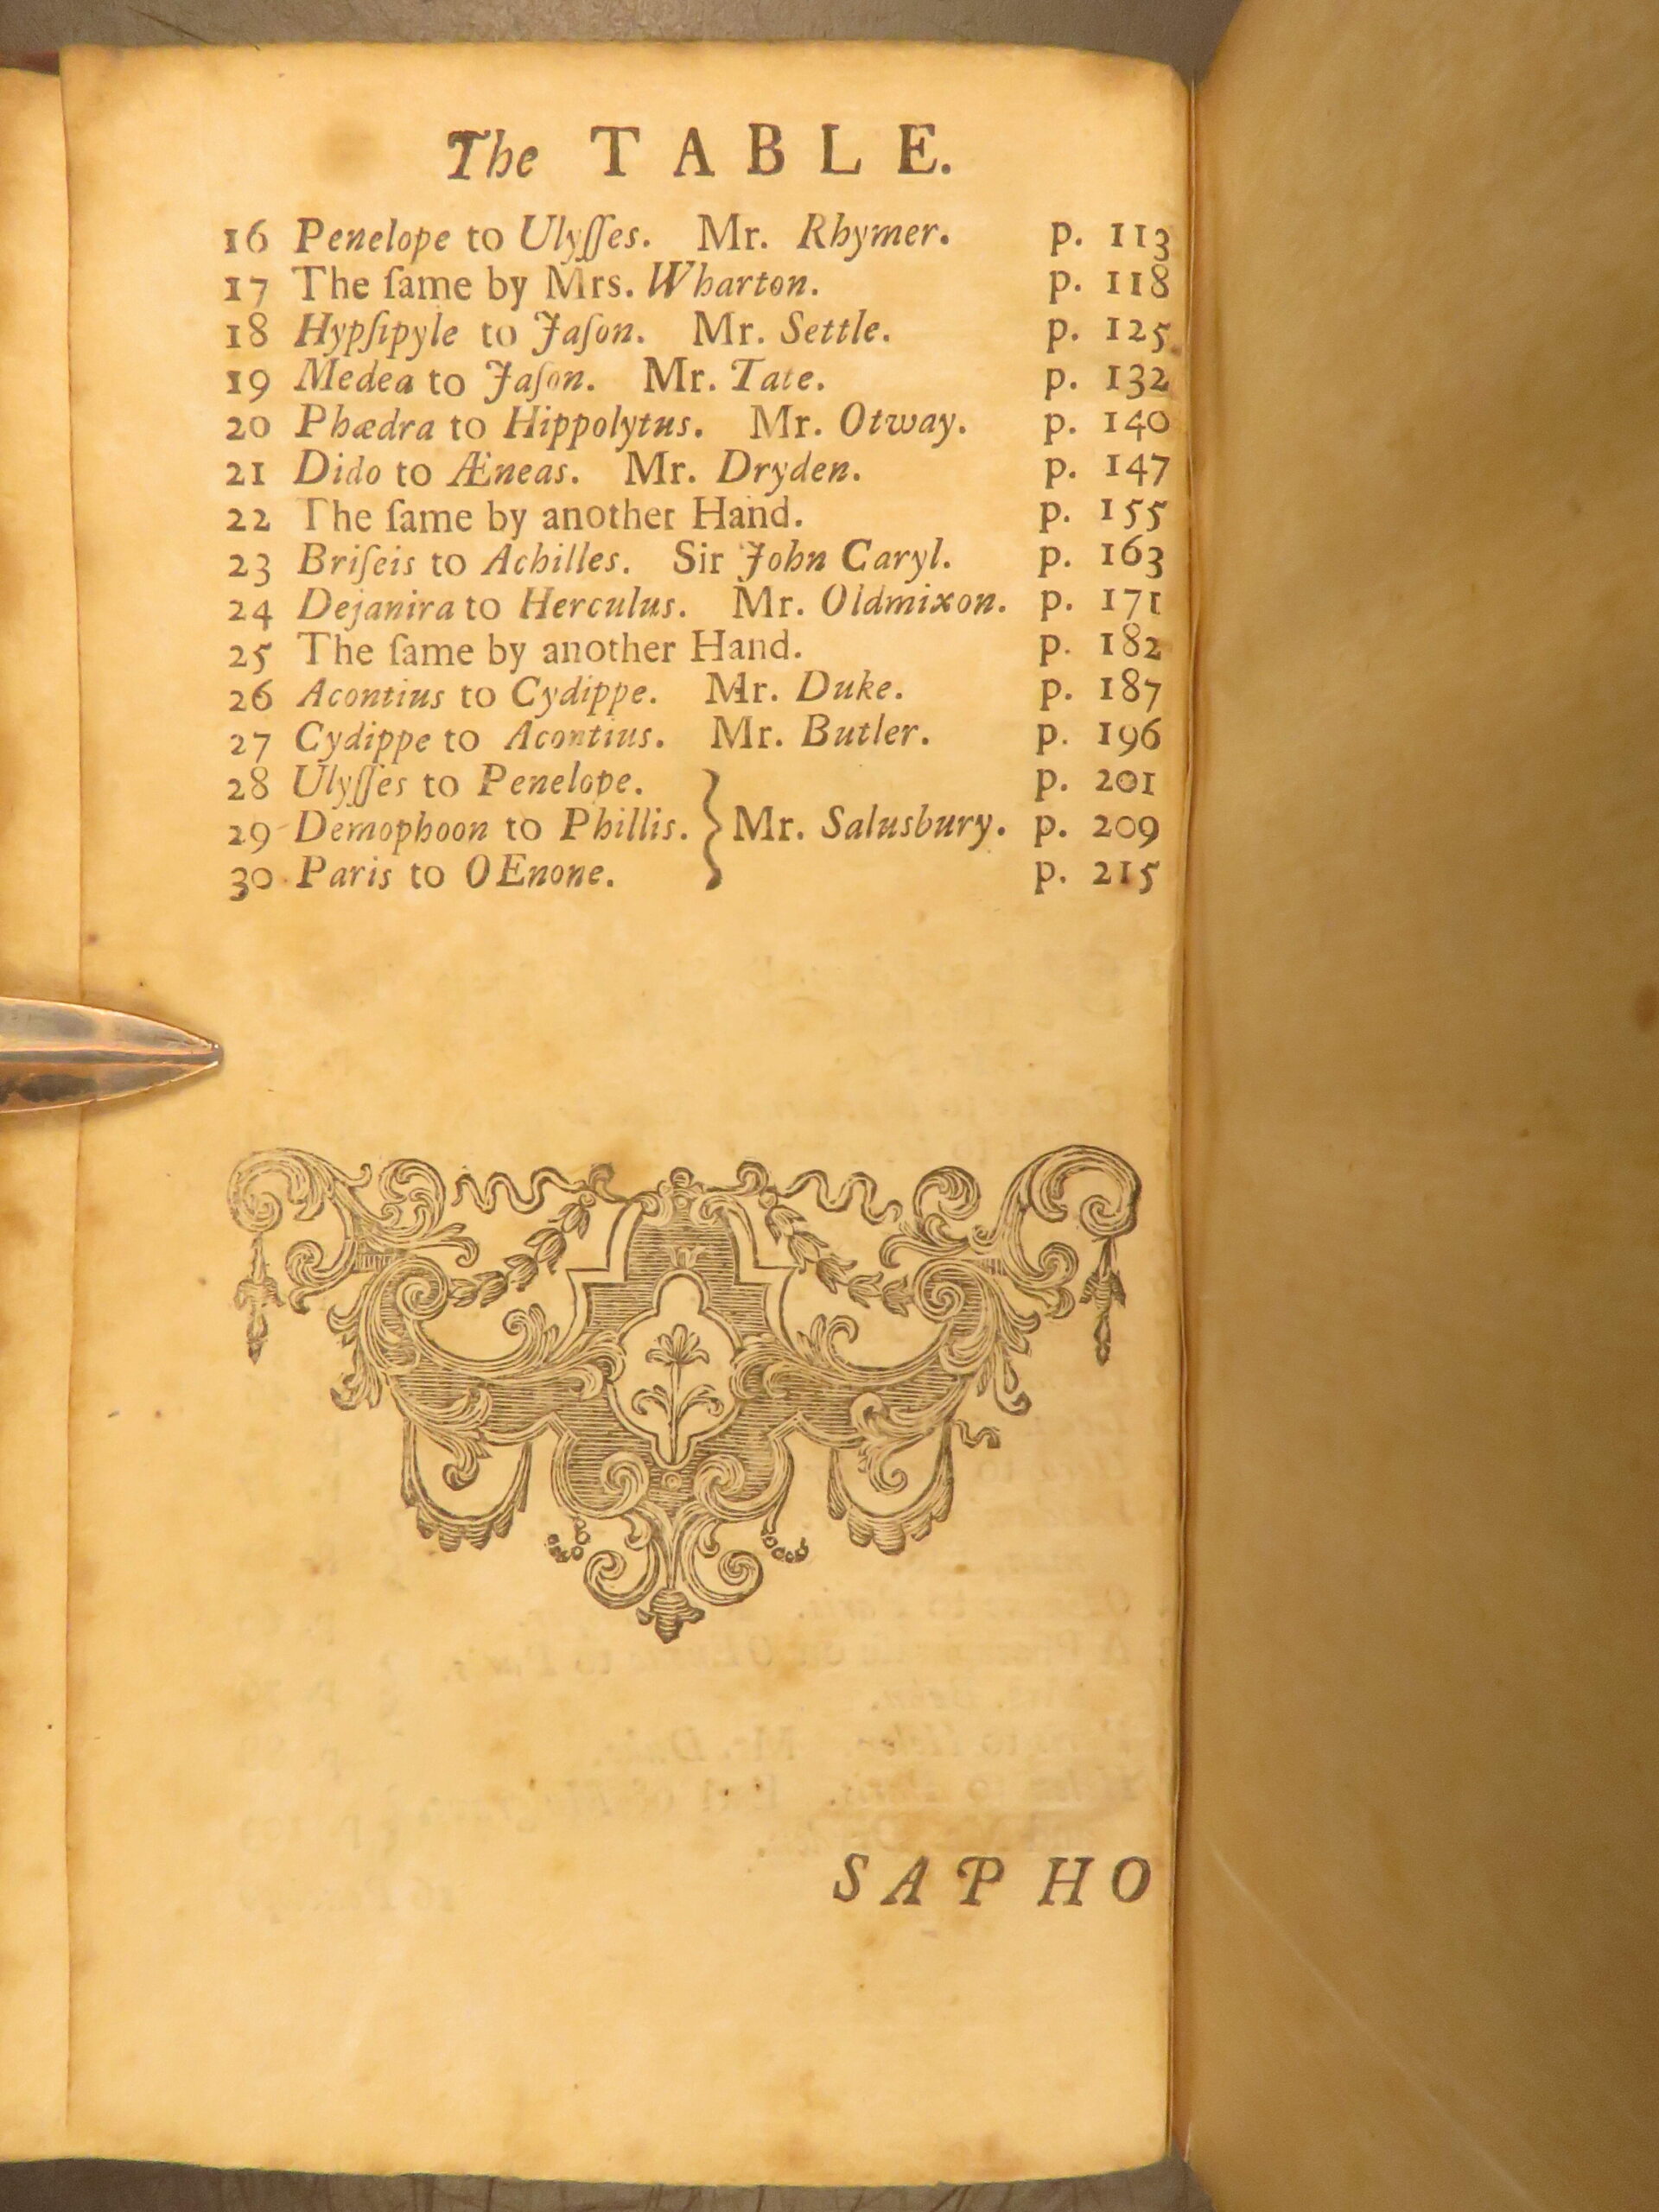 The TABLE.
16 Penelope to Ulyſſes. Mr. Rhymer. p. 113
17 The ſame by Mrs. Wharton. p. 118
18 Hypſipyle to Jaſon. Mr. Settle. p. 125
19 Medea to Jaſon. Mr. Tate. p. 132
20 Phædra to Hippolytus. Mr. Otway. p. 140
21 Dido to Æneas. Mr. Dryden. p. 147
22 The ſame by another Hand. p. 155
23 Briſeis to Achilles. Sir John Caryl. p. 163
24 Dejanira to Herculus. Mr. Oldmixon. p. 171
25 The ſame by another Hand. p. 182
26 Acontius to Cydippe. Mr. Duke. p. 187
27 Cydippe to Acontius. Mr. Butler. p. 196
28 Ulyſſes to Penelope. p. 201
29 Demophoon to Phillis. } Mr. Salusbury. p. 209
30 Paris to OEnone. p. 215
SAPHO